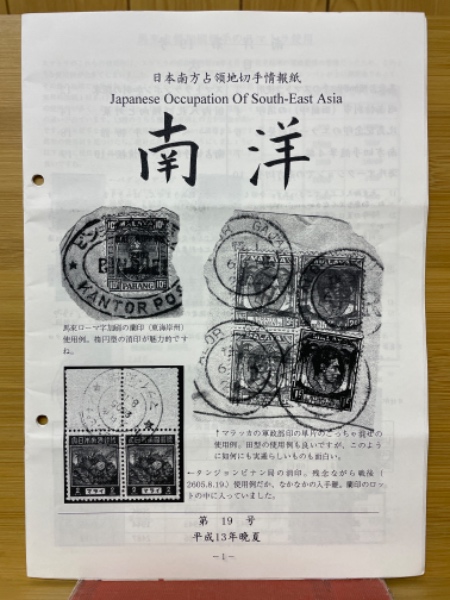 日本南方占領地切手情報紙
Japanese Occupation Of South-East Asia
南洋
MALAYA
PAHANG
KANTOR POS
馬来ローマ字加刷の蘭印（東海岸州）
使用例。楕円型の消印が魅力的です
ね。
↑マラッカの軍政部印の単片のごっちゃ混ぜの
使用例。田型の使用例も良いですが、このよう
に如何にも実逓らしいものも面白い。
←タンジョンピナン局の消印。残念ながら戦後（
2605.8.19.）使用例だが、なかなかの入手難。蘭印のロッ
トの中に入っていました。
第 19 号
平成13年晩夏
－1－